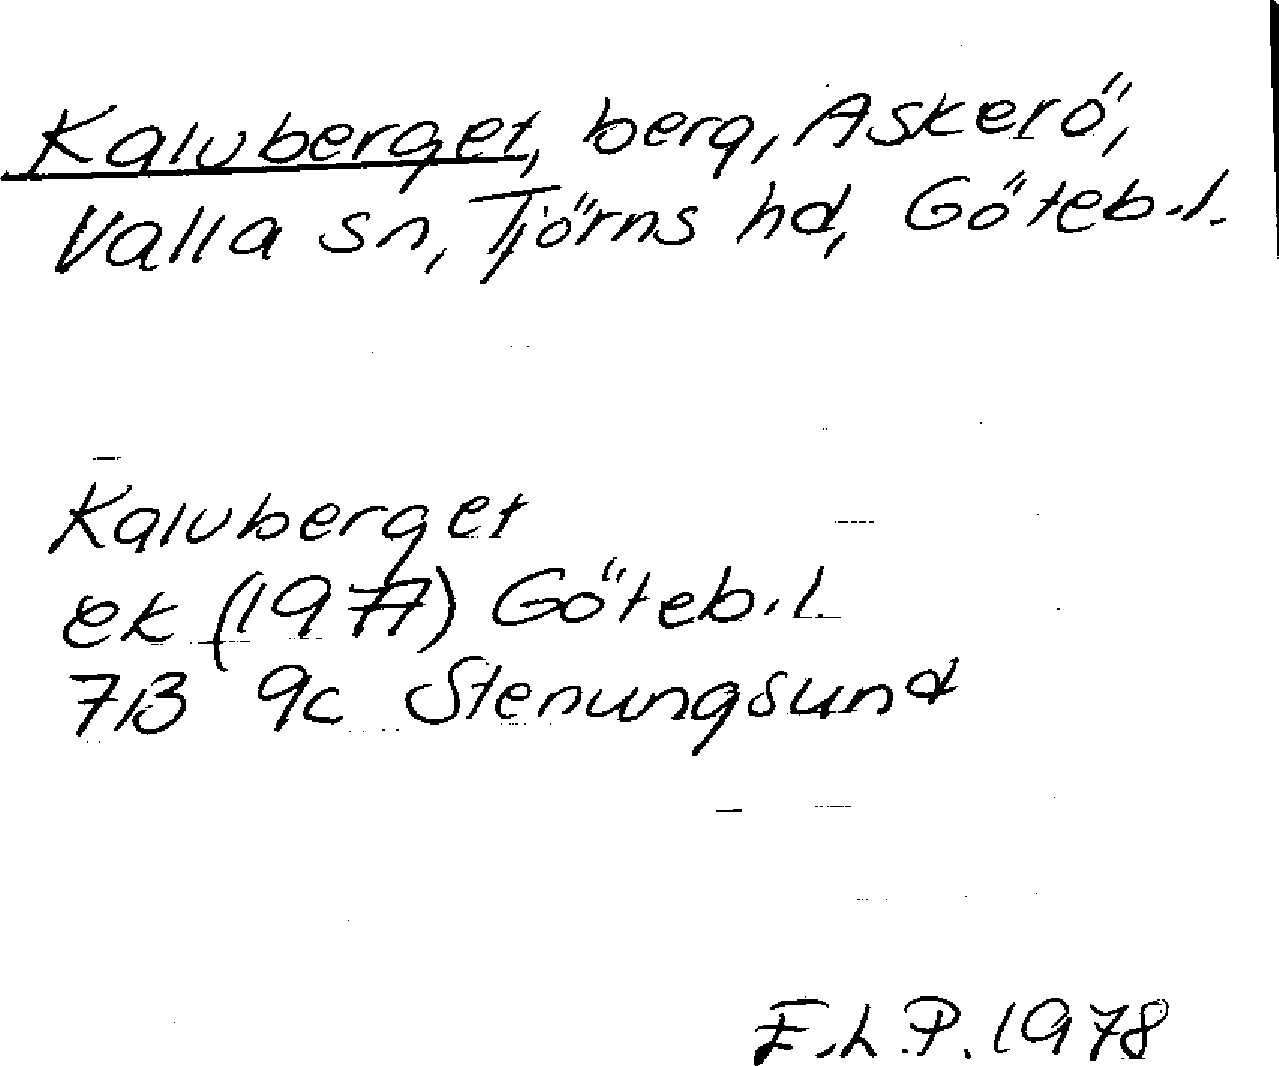 Kalvberget, berg, Askerö,
Valla sn, Tjörns hd, Göteb.l.
Kalvberget
ek (1977) Göteb.l.
7B 9c Stenungsund
E.L.P. 1978